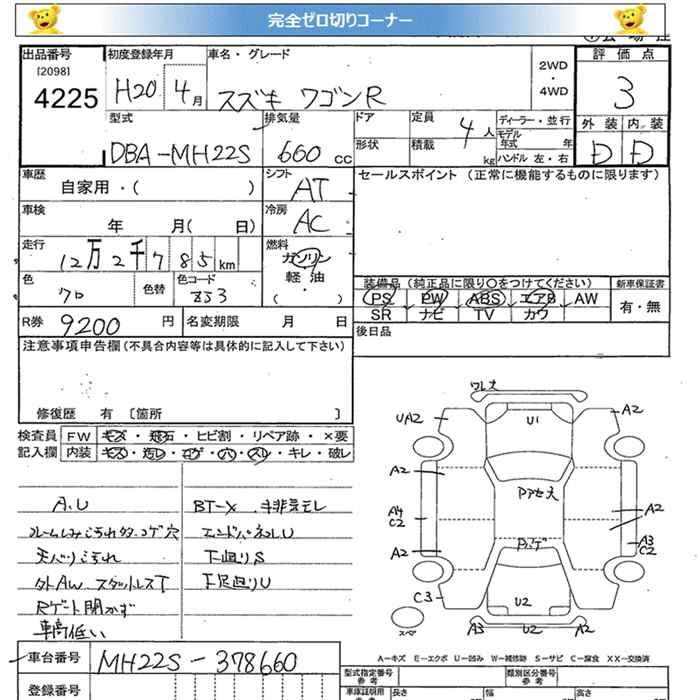 完全ゼロ切りコーナー
出品番号
[2098]
4225
初度登録年月
H20 4月
車名・グレード
スズキ ワゴンR
2WD
・
4WD
評価点
3
外装 内装
D D
型式
DBA-MH22S
排気量
660 cc
ドア
形状
定員
4人
積載
kg
ディーラー・並行
モデル
年式 年
ハンドル 左・右
車歴
自家用・( )
シフト
AT
セールスポイント (正常に機能するものに限ります)
車検
年 月( 日)
冷房
AC
走行
12万2千785km
燃料
ガソリン
軽油
・( )
色
クロ
色替
色コード
ZJ3
装備品 (純正品に限り〇をつけてください)
PS PW ABS エアB AW
SR ナビ TV カワ
新車保証書
有・無
R券 9200 円
名変期限 月 日
後日品
注意事項申告欄 (不具合内容等は具体的に記入して下さい)
修復歴 有 [箇所 ]
検査員
記入欄
FW キズ・飛石・ヒビ割・リペア跡・×要
内装 キズ・汚レ・コゲ・穴・スレ・キレ・破レ
A.U
ルームしみこげ穴
天バリよごれ
外AW スタットレスT
Rゲート開かず
車高低い
BT-X 排気モレ
エンドパネルU
下廻りS
下足廻りU
ワレ大
UA2
U1
A2
A2
Pアセ大
A2
A4
C2
A3
C2
A2
Rハゲ
C3
U2
スペア
A3 U2 A2
A-キズ E-エクボ U-凹み W-補修跡 S-サビ C-腐食 XX-交換済
車台番号 MH22S-378660
登録番号
型式指定番号
参考
類別区分番号
参考
車庫証明用
参考
長さ
幅
高さ